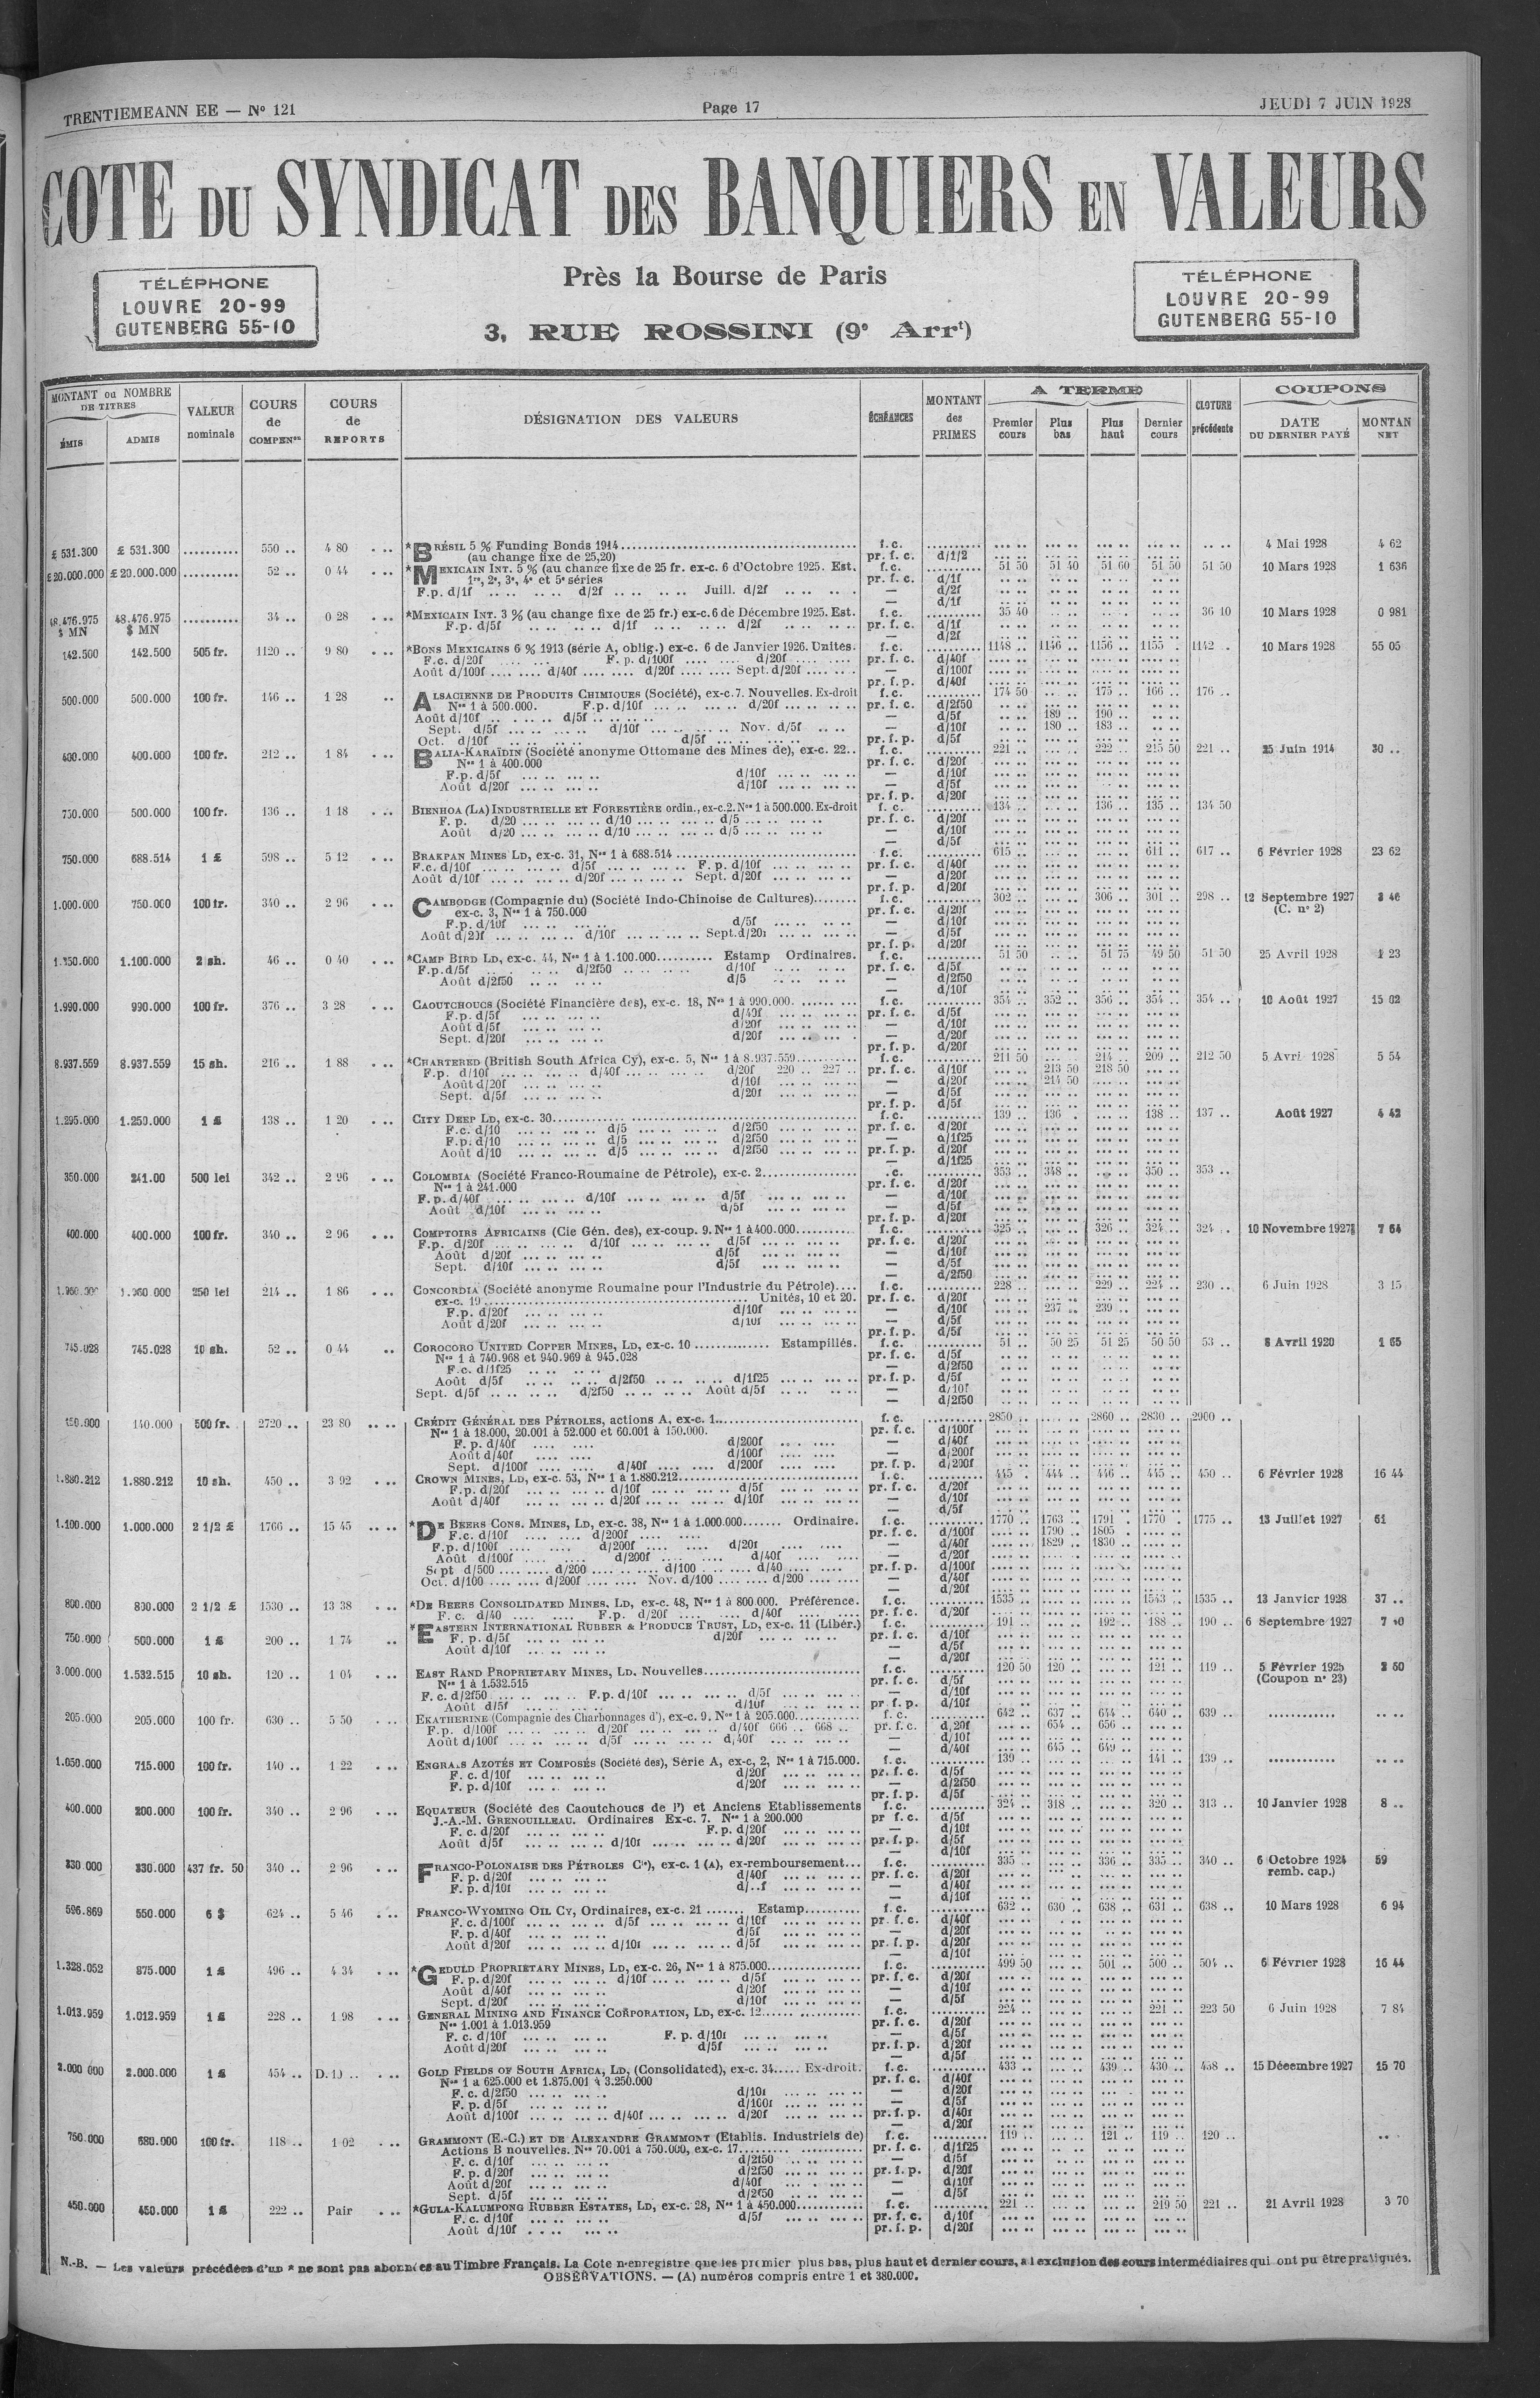 TRENTIEMEANN EE — N° 121 Page 17 JEUDI 7 JUIN 1928
COTE DU SYNDICAT DES BANQUIERS EN VALEURS
Près la Bourse de Paris
3, RUE ROSSINI (9e Arrt)
TÉLÉPHONE
LOUVRE 20-99
GUTENBERG 55-10
TÉLÉPHONE
LOUVRE 20-99
GUTENBERG 55-10
MONTANT ou NOMBRE DE TITRES ÉMIS ADMIS
VALEUR nominale
COURS de COMPENon
COURS de REPORTS
DÉSIGNATION DES VALEURS
ÉCHÉANCES
MONTANT des PRIMES
A TERME Premier cours Plus bas Plus haut Dernier cours
CLOTURE précédente
COUPONS DATE DU DERNIER PAYÉ MONTAN NET
£ 531.300 £ 531.300 .......... 550 .. 4 80 *BRÉSIL 5 % Funding Bonds 1914 f. c. 4 Mai 1928 4 62
(au change fixe de 25,20) pr. f. c. d/1/2
£ 20.000.000 £ 20.000.000 .......... 52 .. 0 44 *MEXICAIN INT. 5 % (au change fixe de 25 fr. ex-c. 6 d'Octobre 1925. Est. f. c. 51 50 51 40 51 60 51 50 51 50 10 Mars 1928 1 636
1re, 2e, 3e, 4e et 5e séries pr. f. c. d/1f
F.p. d/1f d/2f Juill. d/2f — d/2f
— d/1f
48.476.975 $ MN 48.476.975 $ MN .......... 34 .. 0 28 *MEXICAIN INT. 3 % (au change fixe de 25 fr.) ex-c. 6 de Décembre 1925. Est. f. c. 35 40 36 10 10 Mars 1928 0 981
F.p. d/5f d/1f d/2f pr. f. c. d/1f
— d/2f
142.500 142.500 505 fr. 1120 .. 9 80 *BONS MEXICAINS 6 % 1913 (série A, oblig.) ex-c. 6 de Janvier 1926. Unités. f. c. 1148 .. 1146 .. 1156 .. 1155 . 1142 .. 10 Mars 1928 55 05
F.c. d/20f F. p. d/100f d/20f pr. f. c. d/40f
Août d/100f d/40f d/20f Sept. d/20f — d/100f
pr. f. p. d/40f
500.000 500.000 100 fr. 146 .. 1 28 ALSACIENNE DE PRODUITS CHIMIQUES (Société), ex-c. 7. Nouvelles. Ex-droit f. c. 174 50 175 .. 166 .. 176 ..
Nos 1 à 500.000. F.p. d/10f d/20f pr. f. c. d/2f50
Août d/10f d/5f — d/5f 189 .. 190 ..
Sept. d/5f d/10f Nov. d/5f — d/10f 180 .. 183 ..
Oct. d/10f d/5f pr. f. p. d/5f
400.000 400.000 100 fr. 212 .. 1 84 BALIA-KARAÏDIN (Société anonyme Ottomane des Mines de), ex-c. 22.. f. c. 221 .. 222 .. 215 50 221 .. 25 Juin 1914 30 ..
Nos 1 à 400.000 pr. f. c. d/20f
F.p. d/5f d/10f — d/10f
Août d/20f d/10f — d/5f
pr. f. p. d/20f
750.000 500.000 100 fr. 136 .. 1 18 BIENHOA (LA) INDUSTRIELLE ET FORESTIÈRE ordin., ex-c.2. Nos 1 à 500.000. Ex-droit f. c. 134 .. 136 .. 135 .. 134 50
F. p. d/20 d/10 d/5 pr. f. c. d/20f
Août d/20 d/10 d/5 — d/10f
— d/5f
750.000 688.514 1 £ 598 .. 5 12 BRAKPAN MINES LD, ex-c. 31, Nos 1 à 688.514 f. c. 615 .. 611 .. 617 .. 6 Février 1928 23 62
F.c. d/10f d/5f F. p. d/10f pr. f. c. d/40f
Août d/10f d/20f Sept. d/20f — d/20f
pr. f. p. d/20f
1.000.000 750.000 100 fr. 340 .. 2 96 CAMBODGE (Compagnie du) (Société Indo-Chinoise de Cultures) f. c. 302 .. 306 .. 301 .. 298 .. 12 Septembre 1927 3 46
ex-c. 3, Nos 1 à 750.000 pr. f. c. d/20f (C. n° 2)
F.p. d/10f d/5f — d/10f
Août d/20f d/10f Sept. d/20f — d/5f
pr. f. p. d/20f
1.100.000 2 sh. 46 .. 0 40 *CAMP BIRD LD, ex-c. 44, Nos 1 à 1.100.000 Estamp Ordinaires. f. c. 51 50 51 75 49 50 51 50 25 Avril 1928 1 23
F.p. d/5f d/2f50 d/10f pr. f. c. d/5f
Août d/2f50 d/5 — d/2f50
— d/10f
1.990.000 990.000 100 fr. 376 .. 3 28 CAOUTCHOUCS (Société Financière des), ex-c. 18, Nos 1 à 990.000. f. c. 354 .. 352 .. 356 .. 354 .. 354 .. 10 Août 1927 15 02
F.p. d/5f d/40f pr. f. c. d/5f
Août d/5f d/20f — d/10f
Sept. d/20f d/20f — d/20f
pr. f. p. d/20f
8.937.559 8.937.559 15 sh. 216 .. 1 88 *CHARTERED (British South Africa Cy), ex-c. 5, Nos 1 à 8.937.559 f. c. 211 50 214 .. 209 .. 212 50 5 Avri 1928 5 54
F.p. d/10f d/40f d/20f 220 .. 227 .. pr. f. c. d/10f 213 50 218 50
Août d/20f d/10f — d/20f 214 50
Sept. d/5f d/20f — d/5f
pr. f. p. d/5f
1.295.000 1.250.000 1 £ 138 .. 1 20 CITY DEEP LD, ex-c. 30 f. c. 139 .. 136 .. 138 .. 137 .. Août 1927 4 42
F.c. d/10 d/5 d/2f50 pr. f. c. d/20f
F.p. d/10 d/5 d/2f50 — d/1f25
Août d/10 d/5 d/2f50 pr. f. p. d/20f
— d/1f25
350.000 241.00 500 lei 342 .. 2 96 COLOMBIA (Société Franco-Roumaine de Pétrole), ex-c. 2 .c. 353 .. 348 .. 350 .. 353 ..
Nos 1 à 241.000 pr. f. c. d/20f
F. p. d/40f d/10f d/5f — d/10f
Août d/10f d/5f — d/5f
pr. f. p. d/20f
400.000 400.000 100 fr. 340 .. 2 96 COMPTOIRS AFRICAINS (Cie Gén. des), ex-coup. 9. Nos 1 à 400.000 f. c. 325 .. 326 .. 324 .. 324 .. 10 Novembre 1927 7 64
F.p. d/20f d/10f d/5f pr. f. c. d/20f
Août d/20f d/5f — d/10f
Sept. d/10f d/5f — d/5f
— d/2f50
250 lei 214 .. 1 86 CONCORDIA (Société anonyme Roumaine pour l'Industrie du Pétrole) f. c. 228 .. 229 .. 224 .. 230 .. 6 Juin 1928 3 15
ex-c. 19 Unités, 10 et 20. pr. f. c. d/20f
F.p. d/20f d/10f — d/10f 237 .. 239 ..
Août d/20f d/10f — d/5f
pr. f. p. d/5f
745.028 745.028 10 sh. 52 .. 0 44 COROCORO UNITED COPPER MINES, LD, ex-c. 10 Estampillés. f. c. 51 .. 50 25 51 25 50 50 53 .. 8 Avril 1920 1 65
Nos 1 à 740.968 et 940.969 à 945.028 pr. f. c. d/5f
F.c. d/1f25 — d/2f50
Août d/5f d/2f50 d/1f25 pr. f. p. d/5f
Sept. d/5f d/2f50 Août d/5f — d/10f
— d/2f50
150.000 140.000 500 fr. 2720 .. 23 80 CRÉDIT GÉNÉRAL DES PÉTROLES, actions A, ex-c. 1 f. c. 2850 .. 2860 .. 2830 .. 2900 ..
Nos 1 à 18.000, 20.001 à 52.000 et 60.001 à 150.000. pr. f. c. d/100f
F. p. d/40f d/200f — d/40f
Août d/40f d/100f — d/200f
Sept. d/100f d/40f d/200f pr. f. p. d/200f
1.880.212 1.880.212 10 sh. 450 .. 3 92 CROWN MINES, LD, ex-c. 53, Nos 1 à 1.880.212 f. c. 445 . 444 .. 446 .. 445 .. 450 .. 6 Février 1928 16 44
F.p. d/20f d/10f d/5f pr. f. c. d/20f
Août d/40f d/20f d/10f — d/10f
— d/5f
1.100.000 1.000.000 2 1/2 £ 1766 .. 15 45 *DE BEERS CONS. MINES, LD, ex-c. 38, Nos 1 à 1.000.000 Ordinaire. f. c. 1770 .. 1763 .. 1791 .. 1770 .. 1775 .. 13 Juillet 1927 61
F.c. d/10f d/200f pr. f. c. d/100f 1790 .. 1805 ..
F.p. d/100f d/200f d/20f — d/40f 1829 .. 1830 ..
Août d/100f d/200f d/40f — d/20f
Sept d/500 d/200 d/100 d/40 pr. f. p. d/100f
Oct. d/100 d/200f Nov. d/100 d/200 — d/40f
— d/20f
800.000 800.000 2 1/2 £ 1530 .. 13 38 *DE BEERS CONSOLIDATED MINES, LD, ex-c. 48, Nos 1 à 800.000. Préférence. f. c. 1535 .. 1543 .. 1535 .. 13 Janvier 1928 37 ..
F. c. d/40 F.p. d/20f d/40f pr. f. c. d/20f
750.000 500.000 1 £ 200 .. 1 74 *EASTERN INTERNATIONAL RUBBER & PRODUCE TRUST, LD, ex-c. 11 (Libér.) f. c. 191 .. 192 .. 188 .. 190 .. 6 Septembre 1927
F. p. d/5f d/20f pr. f. c. d/10f
Août d/10f — d/5f
— d/20f
3.000.000 1.532.515 10 sh. 120 .. 1 04 EAST RAND PROPRIETARY MINES, LD. Nouvelles f. c. 120 50 120 .. 121 .. 119 .. 5 Février 1925 2 50
Nos 1 à 1.532.515 pr. f. c. d/5f (Coupon n° 23)
F. c. d/2f50 F.p. d/10f d/5f — d/10f
Août d/5f d/10f pr. f. p. d/10f
205.000 205.000 100 fr. 630 .. 5 50 EKATHERINE (Compagnie des Charbonnages d'), ex-c. 9. Nos 1 à 205.000 f. c. 642 .. 637 .. 644 .. 640 .. 639 ..
F.p. d/100f d/20f d/40f 666 .. 668 .. pr. f. c. d/20f 654 .. 656 ..
Août d/100f d/5f d/40f — d/10f
— d/40f 645 .. 649 ..
1.050.000 715.000 100 fr. 140 .. 1 22 ENGRAIS AZOTÉS ET COMPOSÉS (Société des), Série A, ex-c, 2, Nos 1 à 715.000. f. c. 139 .. 141 .. 139 ..
F. c. d/10f d/20f pr. f. c. d/5f
F. p. d/10f d/20f — d/2f50
pr. f. p. d/5f
400.000 200.000 100 fr. 340 .. 2 96 EQUATEUR (Société des Caoutchoucs de l') et Anciens Etablissements f. c. 324 .. 318 .. 320 .. 313 .. 10 Janvier 1928 8 ..
J.-A.-M. GRENOUILLEAU. Ordinaires Ex-c. 7. Nos 1 à 200.000 pr f. c. d/5f
F. c. d/20f F. p. d/20f — d/10f
Août d/5f d/10f d/20f pr. f. p. d/5f
— d/10f
330.000 330.000 437 fr. 50 340 .. 2 96 FRANCO-POLONAISE DES PÉTROLES Cie), ex-c. 1 (A), ex-remboursement f. c. 335 .. 336 .. 335 .. 340 .. 6 Octobre 1924 59
F. p. d/20f d/40f pr. f. c. d/20f remb. cap.)
F. p. d/10f d/..f — d/40f
— d/10f
596.869 550.000 6 $ 624 .. 5 46 FRANCO-WYOMING OIL CY, Ordinaires, ex-c. 21 Estamp f. c. 632 .. 630 .. 638 .. 631 .. 638 .. 10 Mars 1928 6 94
F. c. d/100f d/5f d/10f pr. f. c. d/40f
F. p. d/40f d/5f — d/20f
Août d/20f d/10f d/5f pr. f. p. d/20f
— d/10f
1.328.052 875.000 1 £ 496 .. 4 34 *GEDULD PROPRIETARY MINES, LD, ex-c. 26, Nos 1 à 875.000 f. c. 499 50 501 .. 500 .. 504 .. 6 Février 1928 16 44
F. p. d/20f d/10f d/5f pr. f. c. d/20f
Août d/40f d/20f — d/10f
Sept. d/20f d/10f — d/5f
1.013.959 1.012.959 1 £ 228 .. 1 98 GENERAL MINING AND FINANCE CORPORATION, LD, ex-c. 12 f. c. 224 .. 221 .. 223 50 6 Juin 1928 7 84
Nos 1.001 à 1.013.959 pr. f. c. d/20f
F. c. d/10f F. p. d/10f — d/5f
Août d/20f d/5f pr. f. p. d/20f
— d/5f
2.000.000 2.000.000 1 £ 454 .. GOLD FIELDS OF SOUTH AFRICA, LD, (Consolidated), ex-c. 34 Ex-droit. f. c. 433 .. 439 .. 430 .. 438 .. 15 Décembre 1927 15 70
Nos 1 a 625.000 et 1.875.001 à 3.250.000 pr. f. c. d/40f
F. c. d/2f50 d/10f — d/20f
F. p. d/5f d/100f — d/5f
Août d/100f d/40f d/20f pr. f. p. d/40f
— d/20f
750.000 680.000 100 fr. 118 .. 1 02 GRAMMONT (E.-C.) ET DE ALEXANDRE GRAMMONT (Etablis. Industriels de) f. c. 119 .. 121 .. 119 .. 120 ..
Actions B nouvelles. Nos 70.001 à 750.000, ex-c. 17 pr. f. c. d/1f25
F. c. d/10f d/2f50 — d/5f
F. p. d/20f d/2f50 pr. f. p. d/20f
Août d/20f d/40f — d/10f
Sept. d/5f d/2f50 — d/5f
450.000 450.000 1 £ 222 .. Pair *GULA-KALUMPONG RUBBER ESTATES, LD, ex-c. 28, Nos 1 à 450.000 f. c. 221 .. 219 50 221 .. 21 Avril 1928 3 70
F. c. d/10f d/5f pr. f. c. d/10f
Août d/10f pr. f. p. d/20f
N.-B. — Les valeurs précédées d'un * ne sont pas abonnées au Timbre Français. La Cote n'enregistre que les premier plus bas, plus haut et dernier cours, a l exclusion des cours intermédiaires qui ont pu être pratiqués.
OBSERVATIONS. — (A) numéros compris entre 1 et 380.000.